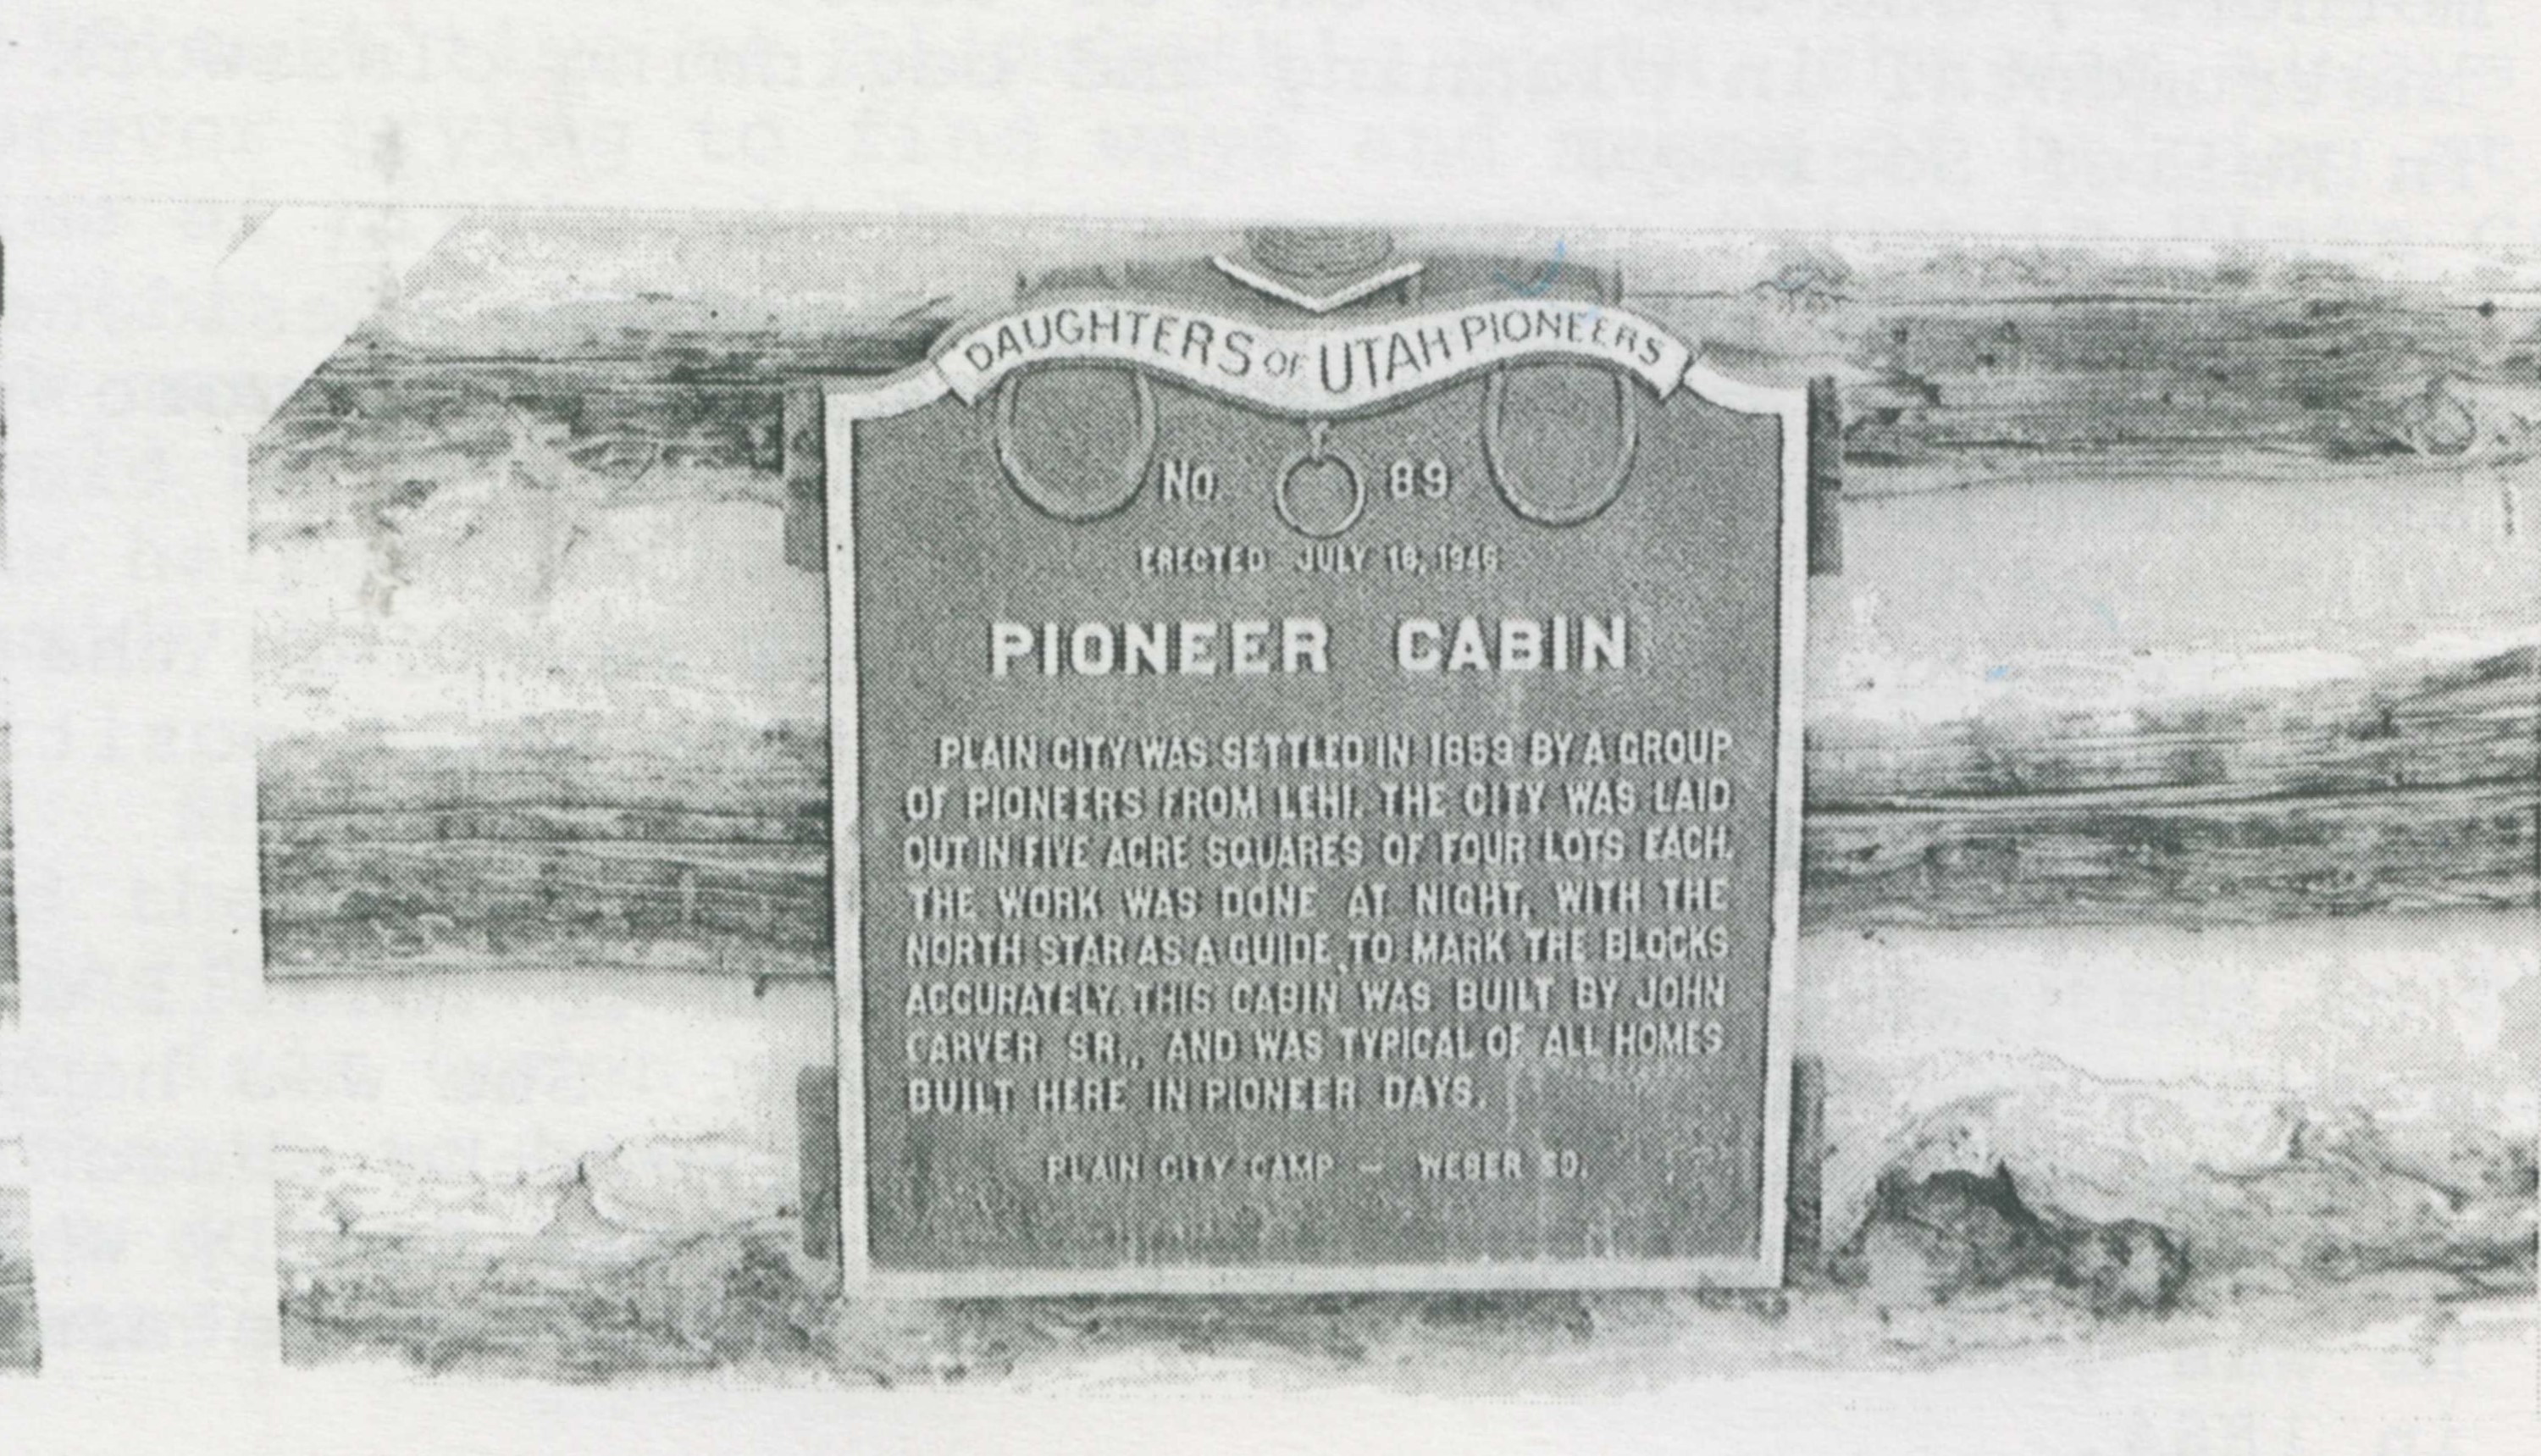 DAUGHTERS OF UTAH PIONEERS
No. 89
ERECTED JULY 1946
PIONEER CABIN
PLAIN CITY WAS SETTLED IN 1859 BY A GROUP
OF PIONEERS FROM LEHI. THE CITY WAS LAID
OUT IN FIVE ACRE SQUARES OF FOUR LOTS EACH.
THE WORK WAS DONE AT NIGHT, WITH THE
NORTH STAR AS A GUIDE, TO MARK THE BLOCKS
ACCURATELY. THIS CABIN WAS BUILT BY JOHN
CARVER SR., AND WAS TYPICAL OF ALL HOMES
BUILT HERE IN PIONEER DAYS.
PLAIN CITY CAMP - WEBER CO.